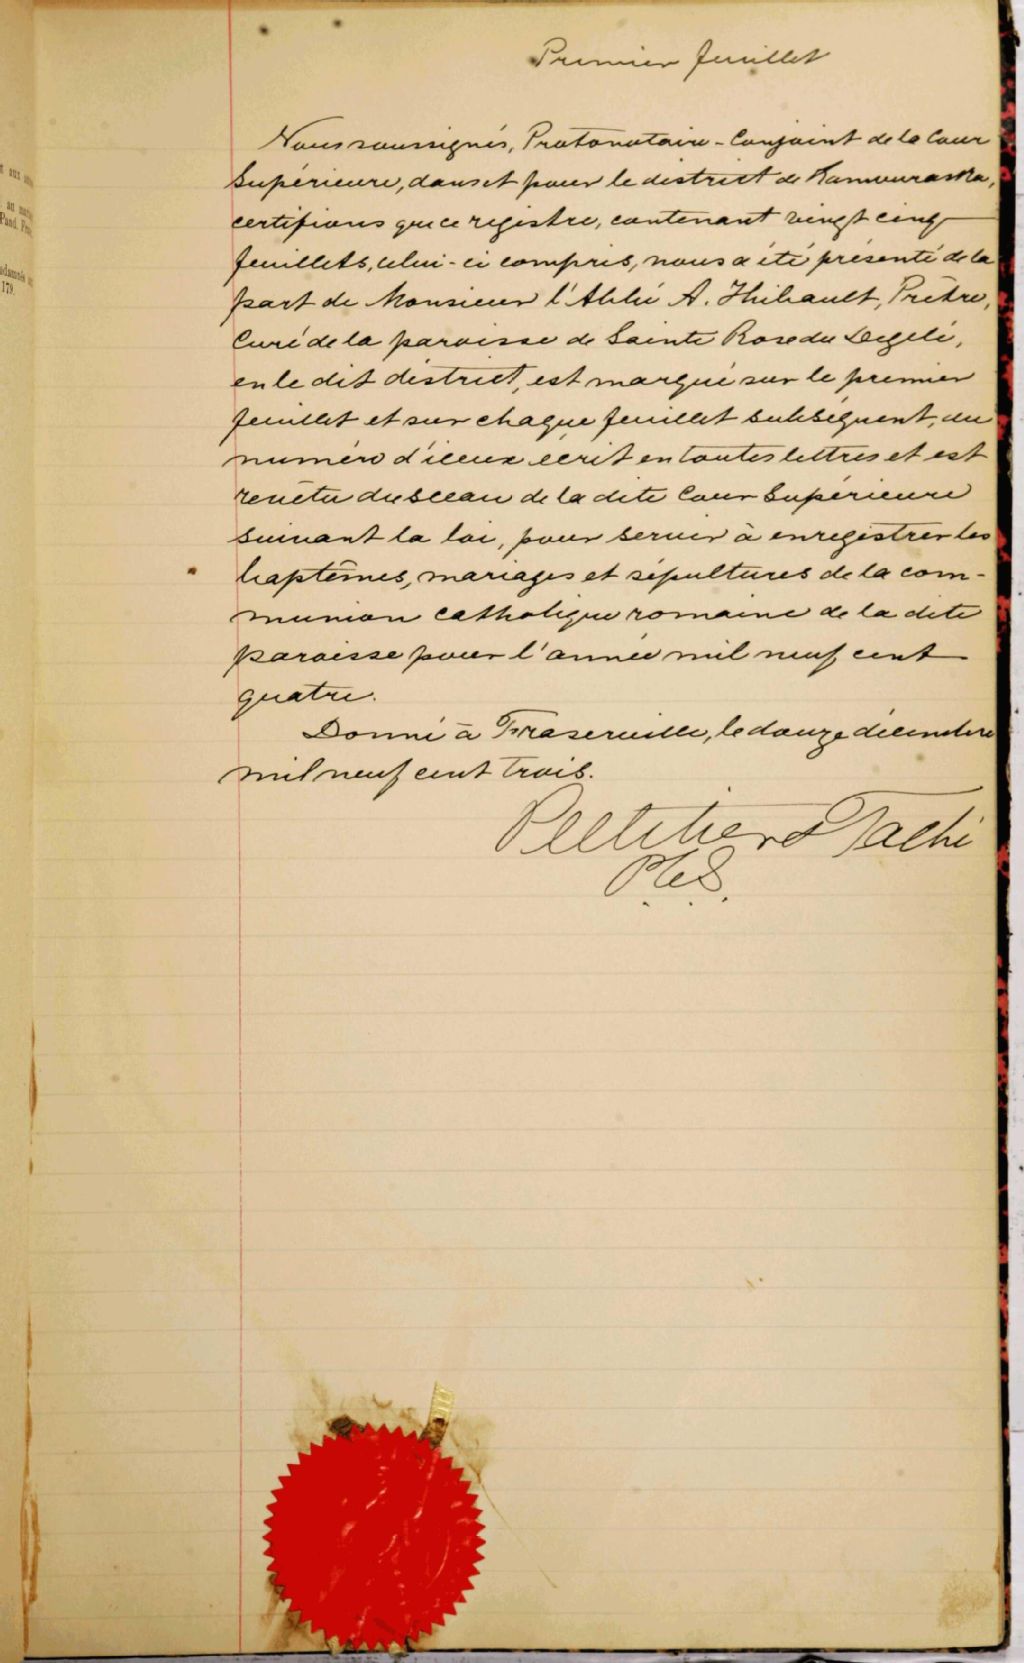 Premier feuillet
Nous soussignés, Protonotaire-Conjoint de la Cour
Supérieure, dans et pour le district de Kamouraska,
certifions que ce registre, contenant vingt cinq
feuillets, celui-ci compris, nous a été présenté de la
part de Monsieur l'Abbé A. Thibault, Prêtre,
Curé de la paroisse de Sainte Rose du Degelé,
en le dit district, est marqué sur le premier
feuillet et sur chaque feuillet subséquent, du
numéro d'iceux écrit en toutes lettres et est
revêtu du sceau de la dite Cour Supérieure
suivant la loi, pour servir à enregistrer les
baptêmes, mariages et sépultures de la com-
munion catholique romaine de la dite
paroisse pour l'année mil neuf cent
quatre.
Donné à Fraserville, le douze décembre
mil neuf cent trois.
Pelletier & Taché
P.C.S.
179.